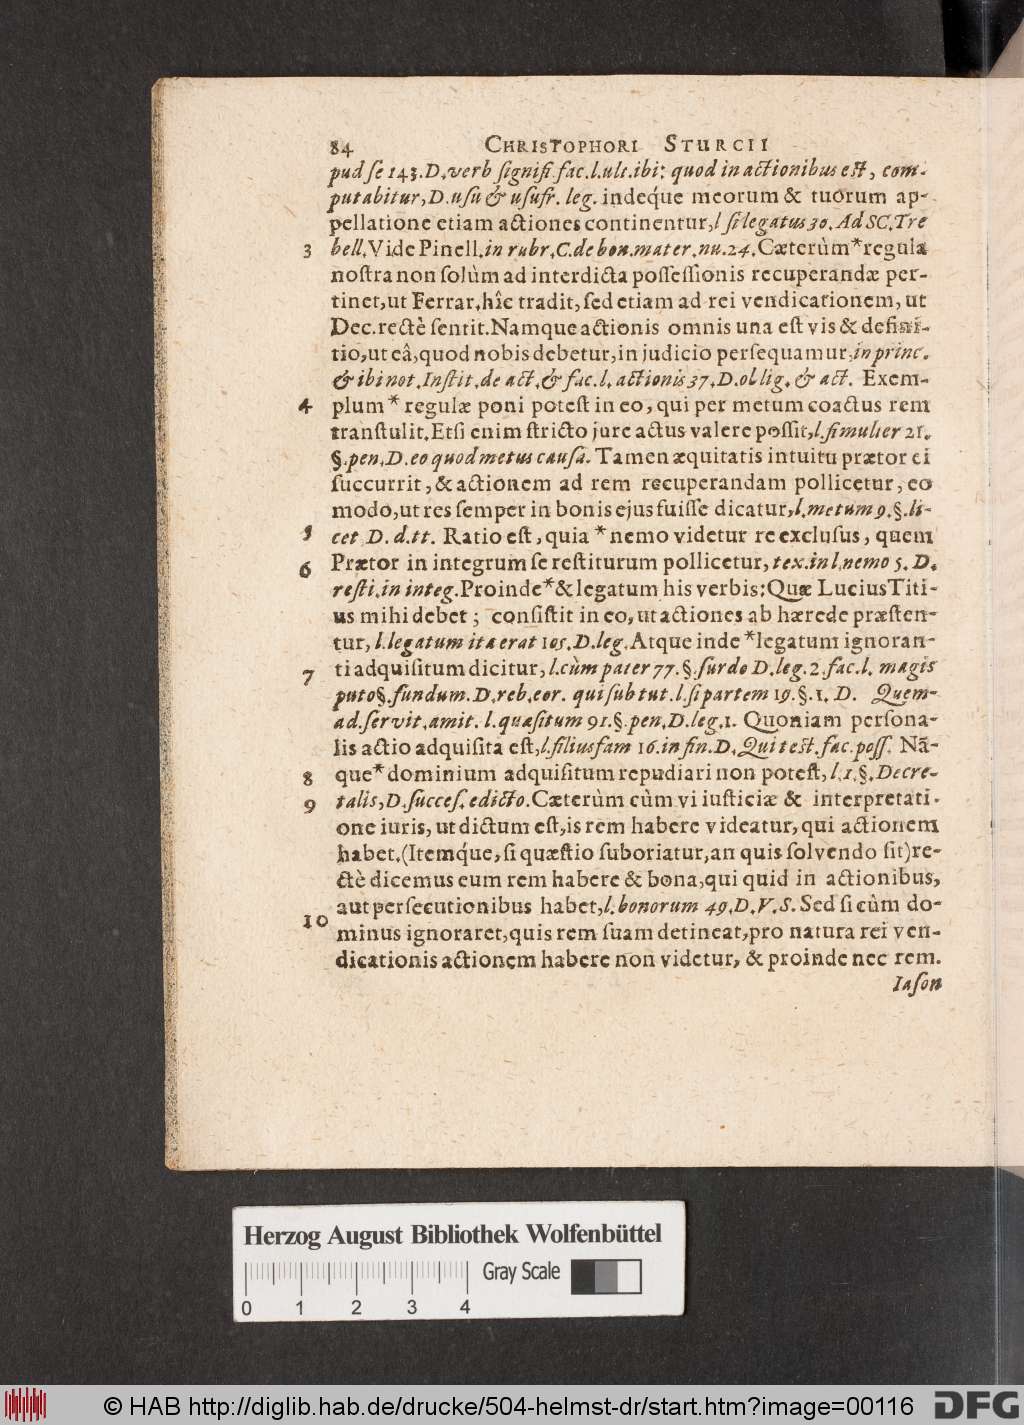 84 CHRISTOPHORI STURCII
pud ſe 143. D. verb ſignifi. fac. l. ult. ibi: quod in actionibus eſt, com-
putabitur, D. uſu & uſufr. leg. indeq́ue meorum & tuorum ap-
pellatione etiam actiones continentur, l ſi legatus 30. Ad SC. Tre
3 bell. Vide Pinell. in rubr. C. de bon. mater. nu. 24. Cæterùm * regula
noſtra non ſolùm ad interdicta poſſeſſionis recuperandæ per-
tinet, ut Ferrar. hîc tradit, ſed etiam ad rei vendicationem, ut
Dec. rectè ſentit. Namque actionis omnis una eſt vis & defini-
tio, ut eâ, quod nobis debetur, in judicio perſequamur, in princ.
& ibi not. Inſtit. de act. & fac. l. actionis 37. D. oblig. & act. Exem-
4 plum * regulæ poni poteſt in eo, qui per metum coactus rem
tranſtulit. Etſi enim ſtricto jure actus valere poſſit, l. ſi mulier 21.
§. pen. D. eo quod metus causâ. Tamen æquitatis intuitu prætor ei
ſuccurrit, & actionem ad rem recuperandam pollicetur, eo
modo, ut res ſemper in bonis ejus fuiſſe dicatur, l. metum 9. §. li-
5 cet D. d. tt. Ratio eſt, quia * nemo videtur re excluſus, quem
6 Prætor in integrum ſe reſtiturum pollicetur, tex. in l. nemo 5. D.
reſti. in integ. Proinde * & legatum his verbis: Quæ Lucius Titi-
us mihi debet; conſiſtit in eo, ut actiones ab hærede præſten-
tur, l. legatum ita erat 105. D. leg. Atque inde * legatum ignoran-
7 ti adquiſitum dicitur, l. cùm pater 77. §. ſurdo D. leg. 2. fac. l. magis
puto §. fundum. D. reb. eor. qui ſub tut. l. ſi partem 19. §. 1. D. Quem-
ad. ſervit. amit. l. quæſitum 91. §. pen. D. leg. 1. Quoniam perſona-
lis actio adquiſita eſt, l. filiusfam 16. in fin. D. Qui teſt. fac. poſſ. Nã-
8 que * dominium adquiſitum repudiari non poteſt, l. 1. §. Decre-
9 talis, D. ſucceſ. edicto. Cæterùm cùm vi iuſticiæ & interpretati-
one iuris, ut dictum eſt, is rem habere videatur, qui actionem
habet. (Itemq́ue, ſi quæſtio ſuboriatur, an quis ſolvendo ſit) re-
ctè dicemus eum rem habere & bona, qui quid in actionibus,
aut perſecutionibus habet, l. bonorum 49. D. V. S. Sed ſi cùm do-
10 minus ignoraret, quis rem ſuam detineat, pro natura rei ven-
dicationis actionem habere non videtur, & proinde nec rem.
Iaſon
Herzog August Bibliothek Wolfenbüttel
Gray Scale
0 1 2 3 4
© HAB http://diglib.hab.de/drucke/504-helmst-dr/start.htm?image=00116
DFG